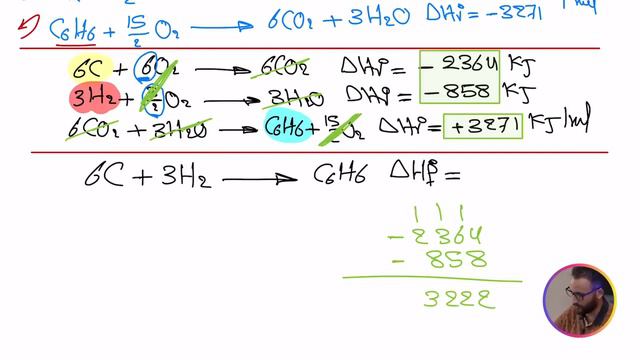 C6H6 + 15/2 O2 → 6CO2 + 3H2O ΔHi = -3271
6C + 6O2 → 6CO2 ΔHi = - 2364 KJ
3H2 + 3/2 O2 → 3H2O ΔHi = - 858 KJ
6CO2 + 3H2O → C6H6 + 15/2 O2 ΔHi = +3271 KJ/mol
6C + 3H2 → C6H6 ΔHf =
1 1 1
- 2364
- 858
3222